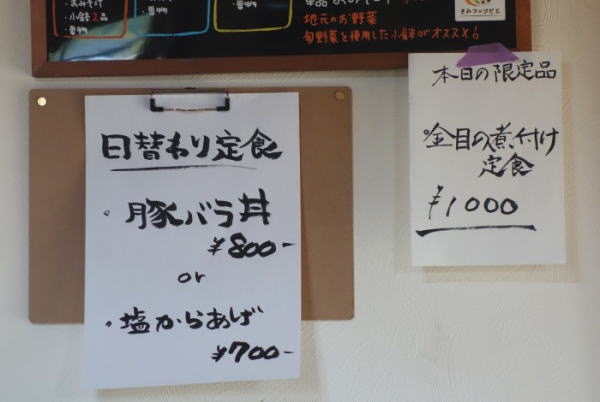 ・おみそ汁
・小鉢2品
・香物
・香物
・香物
地元のお野菜
旬野菜を使用した小鉢がオススメ!
きみつ×ジビエ
日替わり定食
・豚バラ丼
¥800-
or
・塩からあげ
¥700-
本日の限定品
・金目の煮付け
定食
¥1000